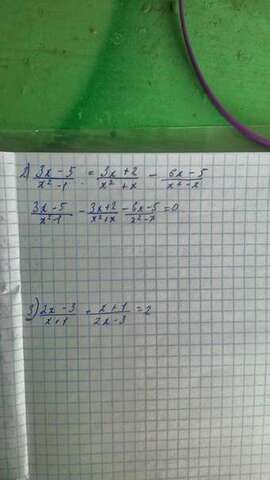 2) (3x-5)/(x²-1) = (3x+2)/(x²+x) - (6x-5)/(x²-x)
(3x-5)/(x²-1) - (3x+2)/(x²+x) - (6x-5)/(x²-x) = 0
3) (2x-3)/(x+1) + (x+1)/(2x-3) = 2